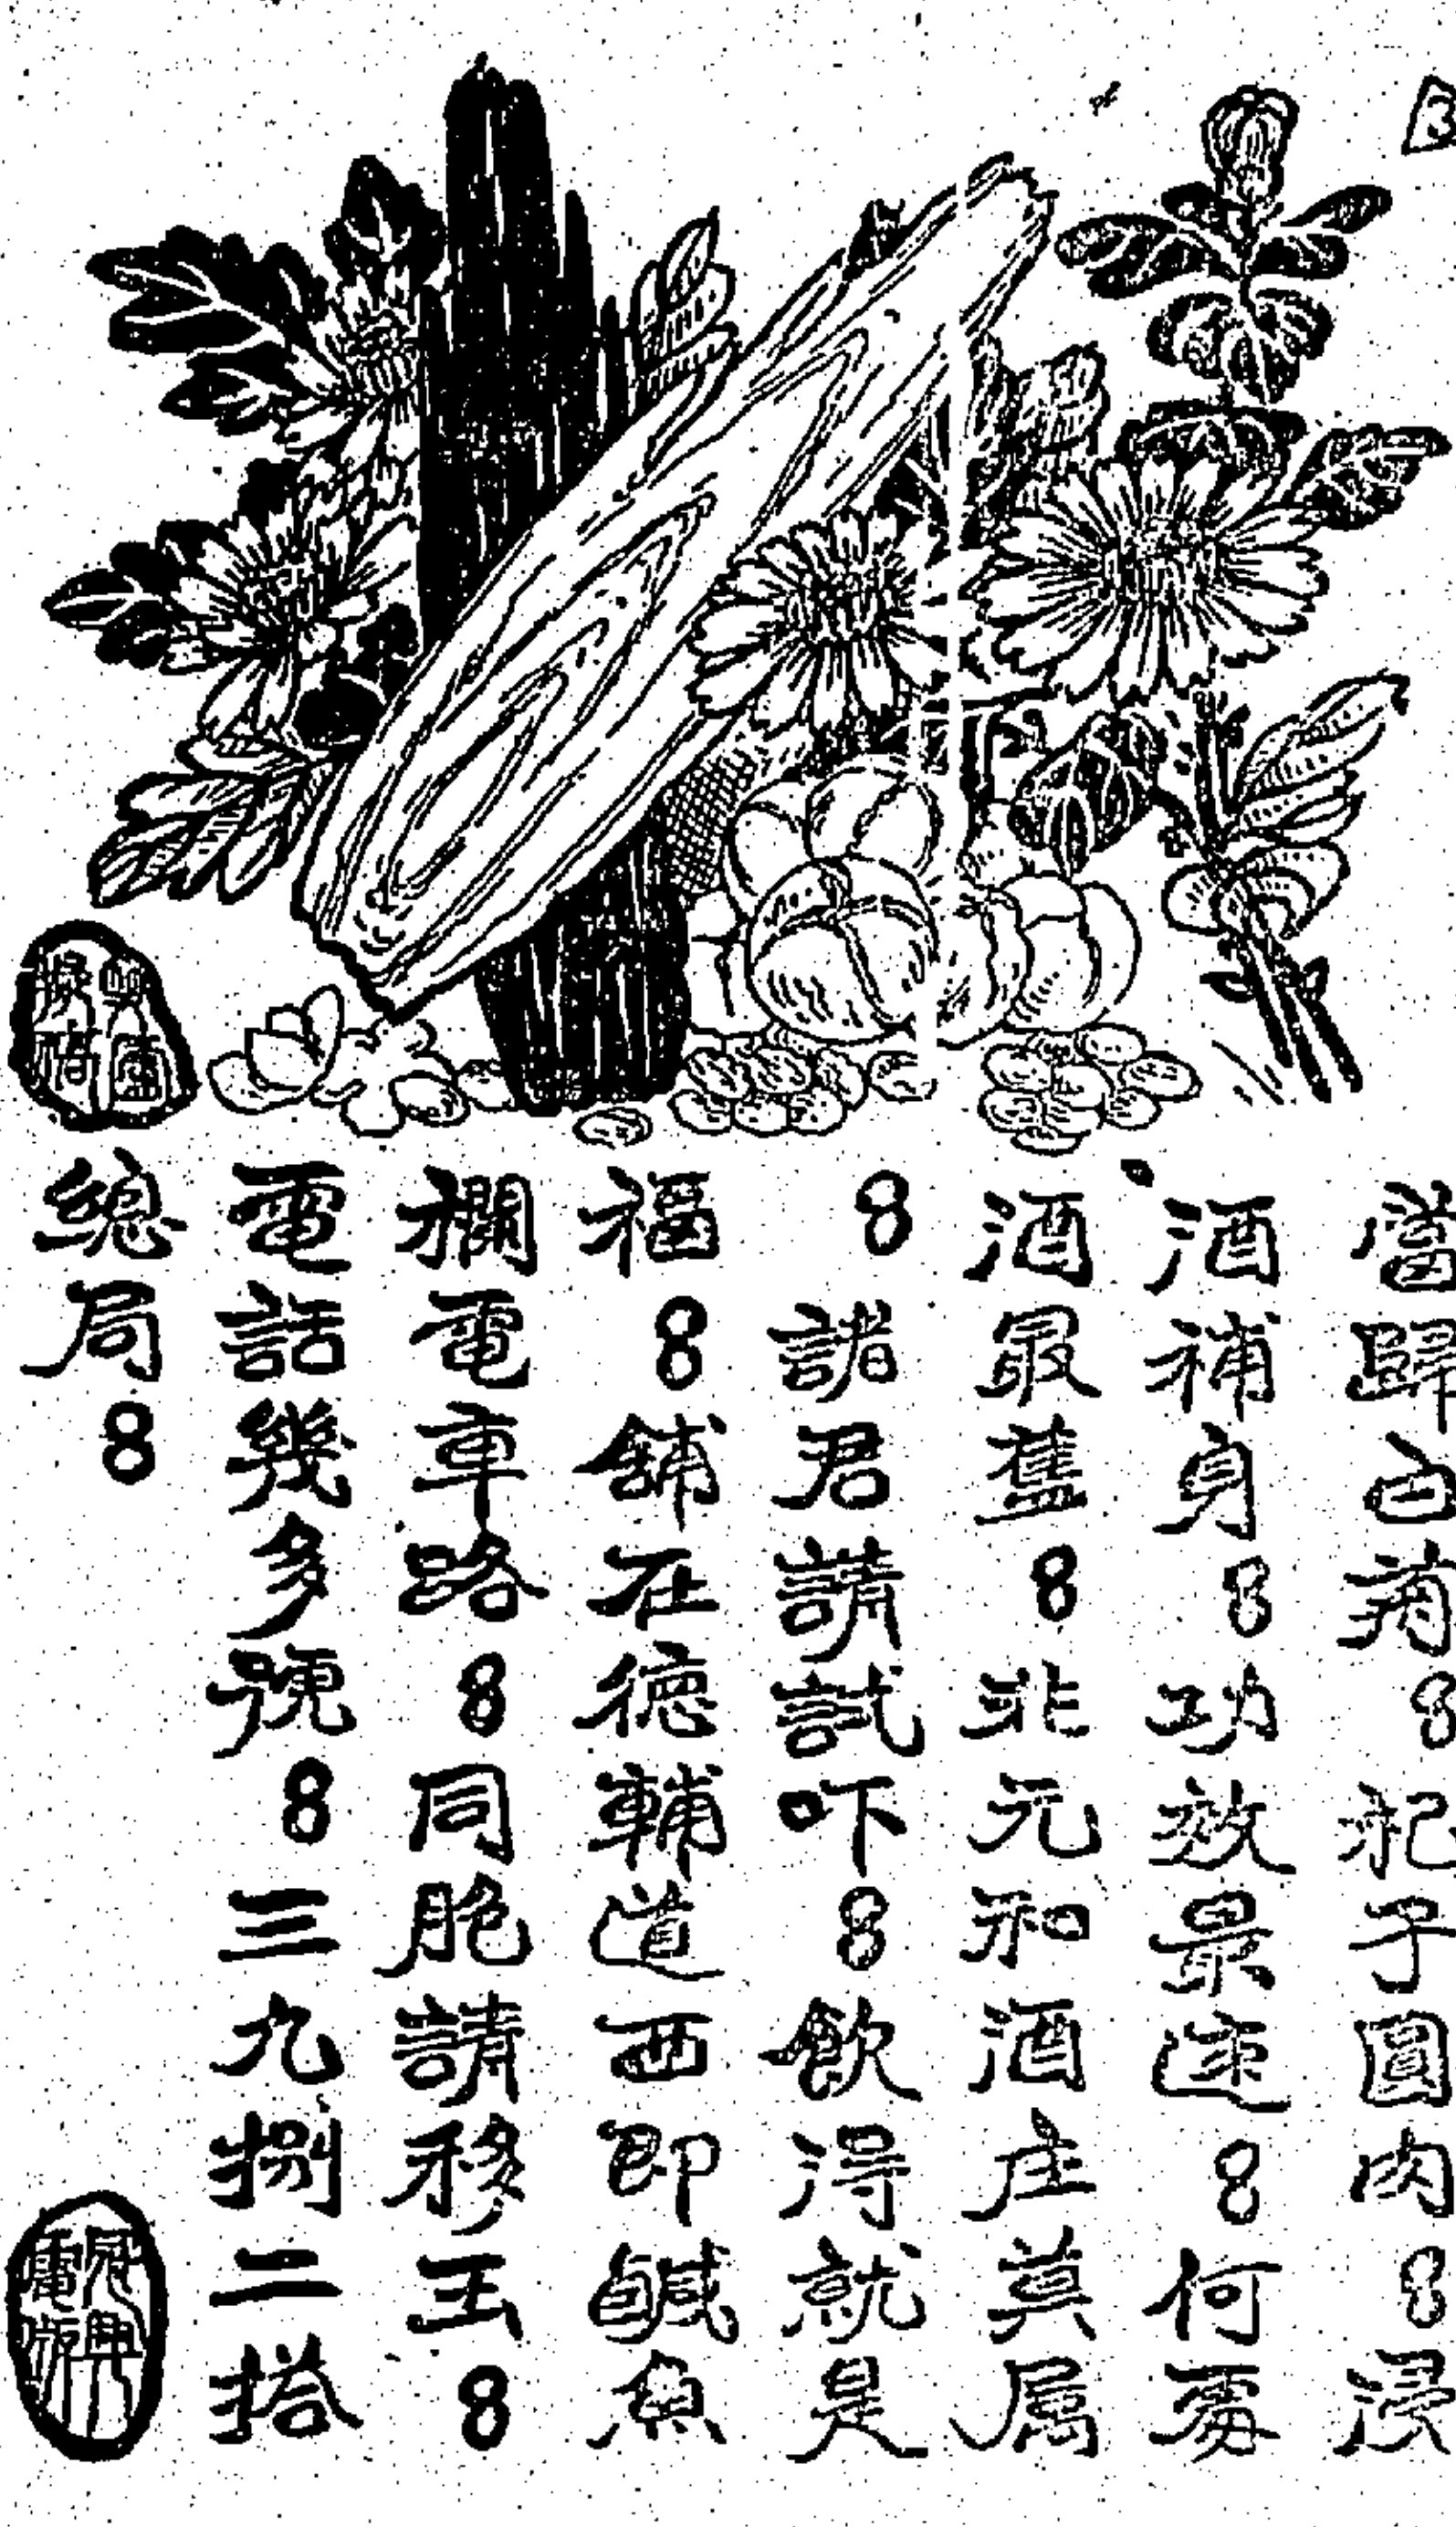 當歸白菊8杞子圓肉8浸
酒補身8功效最速8何處
酒最舊8非元和酒庄莫属
8諸君請試吓8飲得就是
福8舖在德輔道西即鹹魚
欄電車路8同胞請移玉8
電話幾多號8三九捌二搭
總局8